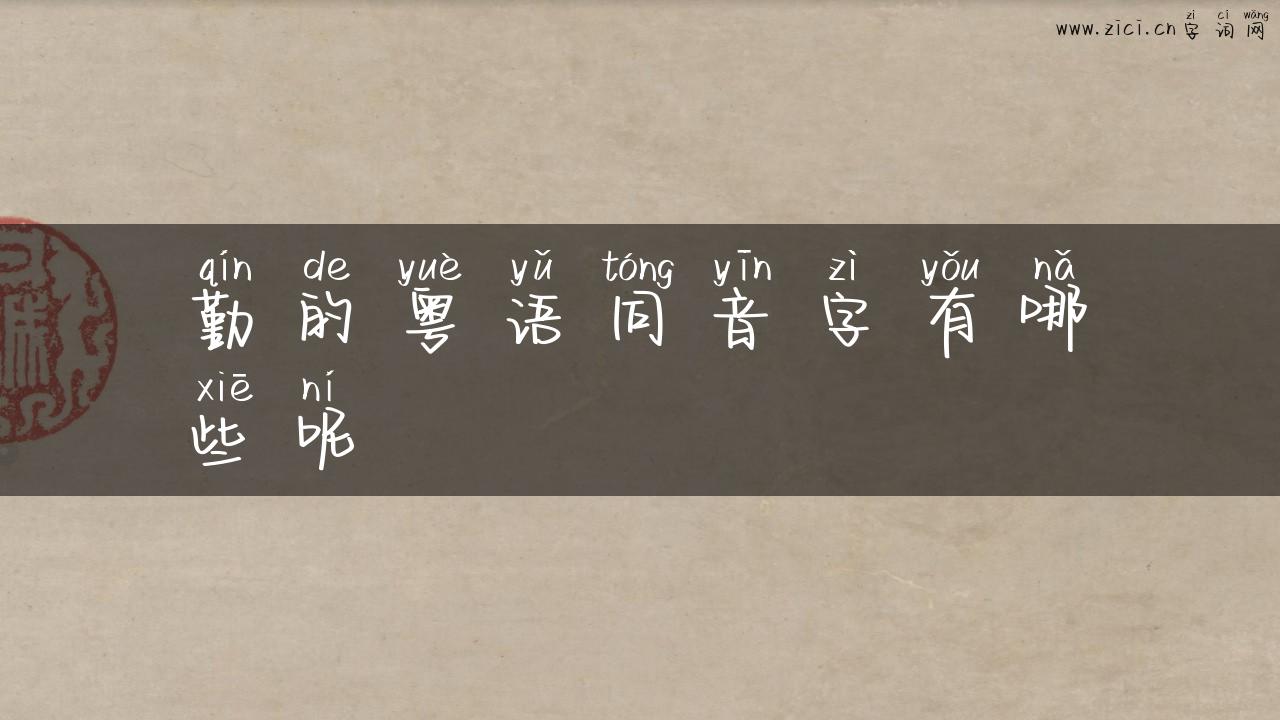 zì cí wǎng
www.zici.cn 字 词 网
qín de yuè yǔ tóng yīn zì yǒu nǎ
勤 的 粤 语 同 音 字 有 哪
xiē ní
些 呢